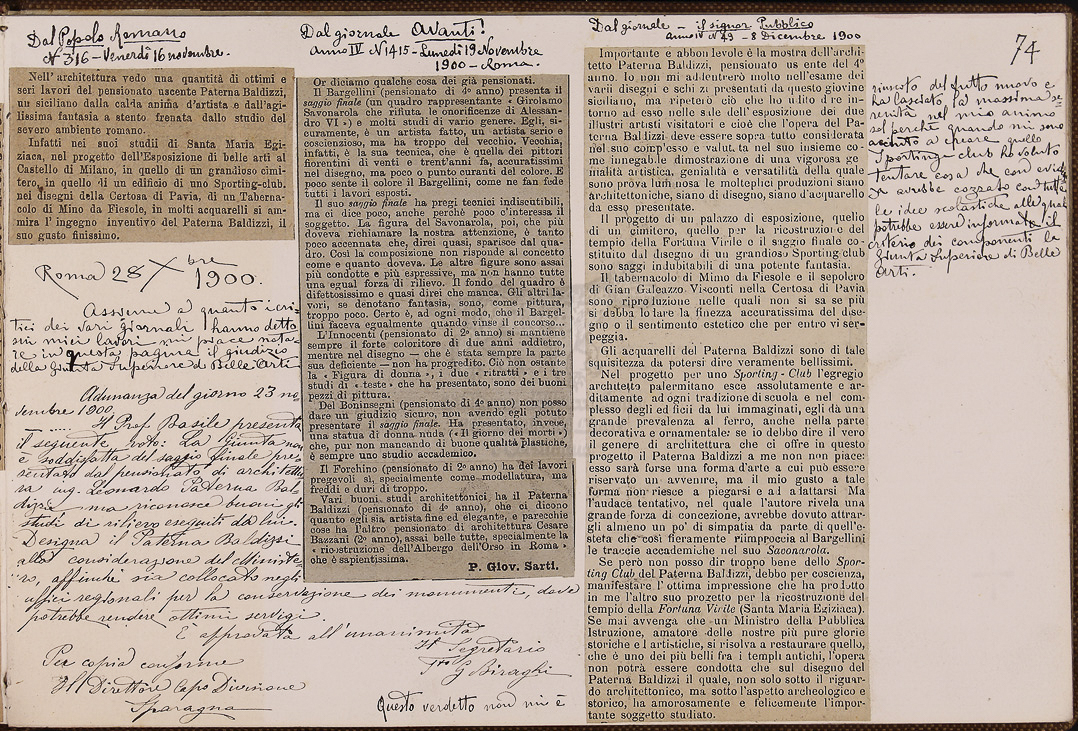 Dal Popolo Romano
N° 316 - Venerdì 16 novembre.
Nell' architettura vedo una quantità di ottimi e
seri lavori del pensionato uscente Paterna Baldizzi,
un siciliano dalla calda anima d'artista e dall'agi-
lissima fantasia a stento frenata dallo studio del
severo ambiente romano.
Infatti nei suoi studi di Santa Maria Egi-
ziaca, nel progetto dell'Esposizione di belle arti al
Castello di Milano, in quello di un grandioso cimi-
tero, in quello di un edificio di uno Sporting-club,
nei disegni della Certosa di Pavia, di un Taberna-
colo di Mino da Fiesole, in molti acquarelli si am-
mira l' ingegno inventivo del Paterna Baldizzi, il
suo gusto finissimo.
Roma 28 Xbre
1900.
Assieme a quanto i cri-
tici dei vari giornali hanno detto
sui miei lavori mi piace nota-
re in questa pagina il giudizio
della Giunta Superiore di Belle Arti
Adunanza del giorno 23 no-
vembre 1900.
Il Prof. Basile presenta
il seguente voto: La Giunta non
è soddisfatta del saggio finale pre-
sentato dal pensionato di architettu-
ra ing. Leonardo Paterna Bal-
dizzi ma riconosce buoni gli
studi di rilievo eseguiti da lui.
Designa il Paterna Baldizzi
alla considerazione del Ministe-
ro, affinché sia collocato negli
uffici regionali per la conservazione dei monumenti, dove
potrebbe rendere ottimi servigi.
È approvata all'unanimità
Il Segretario
Fto G Biraghi
Per copia conforme
Il Direttore Capo Divisione
Sparagna
Questo verdetto non mi è
Dal giornale Avanti!
Anno IV N 1415 - Lunedì 19 Novembre
1900 - Roma.
Or diciamo qualche cosa dei già pensionati.
Il Bargellini (pensionato di 4o anno) presenta il
saggio finale (un quadro rappresentante « Girolamo
Savonarola che rifiuta le onorificenze di Alessan-
dro VI ») e molti studi di vario genere. Egli, si-
curamente, è un artista fatto, un artista serio e
coscienzioso, ma ha troppo del vecchio. Vecchia,
infatti, è la sua tecnica, che è quella dei pittori
fiorentini di venti e trent'anni fa, accuratissimi
nel disegno, ma poco o punto curanti del colore. E
poco sente il colore il Bargellini, come ne fan fede
tutti i lavori esposti.
Il suo saggio finale ha pregi tecnici indiscutibili,
ma ci dice poco, anche perchè poco c'interessa il
soggetto. La figura del Savonarola, poi, che più
doveva richiamare la nostra attenzione, è tanto
poco accennata che, direi quasi, sparisce dal qua-
dro. Così la composizione non risponde al concetto
come e quanto doveva. Le altre figure sono assai
più condotte e più espressive, ma non hanno tutte
una egual forza di rilievo. Il fondo del quadro è
difettosissimo e quasi direi che manca. Gli altri la-
vori, se denotano fantasia, sono, come pittura,
troppo poco. Certo è, ad ogni modo, che il Bargel-
lini faceva egualmente quando vinse il concorso...
L'Innocenti (pensionato di 2o anno) si mantiene
sempre il forte coloritore di due anni addietro,
mentre nel disegno — che è stata sempre la parte
sua deficiente — non ha progredito. Ciò non ostante
la « Figura di donna », i due « ritratti » e i tre
studi di « teste » che ha presentato, sono dei buoni
pezzi di pittura.
Del Boninsegni (pensionato di 4o anno) non posso
dare un giudizio sicuro, non avendo egli potuto
presentare il saggio finale. Ha presentato, invece,
una statua di donna nuda (« Il giorno dei morti »)
che, pur non mancando di buone qualità plastiche,
è sempre uno studio accademico.
Il Forchino (pensionato di 2o anno) ha dei lavori
pregevoli sì, specialmente come modellatura, ma
freddi e duri di troppo.
Vari buoni studi architettonici, ha il Paterna
Baldizzi (pensionato di 4o anno), che ci dicono
quanto egli sia artista fine ed elegante, e parecchie
cose ha l'altro pensionato di architettura Cesare
Bazzani (2o anno), assai belle tutte, specialmente la
« ricostruzione dell'Albergo dell'Orso in Roma »
che è sapientissima.
P. Giov. Sarti.
Dal giornale - il signor Pubblico
Anno IV N 49 - 8 Dicembre 1900
Importante e abbondevole è la mostra dell'archi-
tetto Paterna Baldizzi, pensionato uscente del 4o
anno. Io non mi addentrerò molto nell'esame dei
varii disegni e schizzi presentati da questo giovine
siciliano, ma ripeterò ciò che ho udito dire in-
torno ad esso nelle sale dell'esposizione dei due
illustri artisti visitatori e cioè che l'opera del Pa-
terna Baldizzi deve essere sopra tutto considerata
nel suo complesso e valutata nel suo insieme co-
me innegabile dimostrazione di una vigorosa ge-
nialità artistica, genialità e versatilità della quale
sono prova luminosa le molteplici produzioni siano
architettoniche, siano di disegno, siano d'acquarello
da esso presentate.
Il progetto di un palazzo di esposizione, quello
di un cimitero, quello per la ricostruzione del
tempio della Fortuna Virile e il saggio finale co-
stituito dal disegno di un grandioso Sporting club
sono saggi indubitabili di una potente fantasia.
Il tabernacolo di Mino da Fiesole e il sepolcro
di Gian Galeazzo Visconti nella Certosa di Pavia
sono riproduzione nelle quali non si sa se più
si debba lodare la finezza accuratissima del dise-
gno o il sentimento estetico che per entro vi ser-
peggia.
Gli acquarelli del Paterna Baldizzi sono di tale
squisitezza da potersi dire veramente bellissimi.
Nel progetto per uno Sporting-Club l'egregio
architetto palermitano esce assolutamente e ar-
ditamente ad ogni tradizione di scuola e nel com-
plesso degli edificii da lui immaginati, egli dà una
grande prevalenza al ferro, anche nella parte
decorativa e ornamentale: se io debbo dire il vero
il genere di architettura che ci offre in questo
progetto il Paterna Baldizzi a me non non piace:
esso sarà forse una forma d'arte a cui può essere
riservato un avvenire, ma il mio gusto a tale
forma non riesce a piegarsi e ad adattarsi Ma
l'audace tentativo, nel quale l'autore rivela una
grande forza di concezione, avrebbe dovuto attrar-
gli almeno un po' di simpatia da parte di quell'e-
steta che così fieramente riimproccia al Bargellini
le traccie accademiche nel suo Savonarola.
Se però non posso dir troppo bene dello Spor-
ting Club del Paterna Baldizzi, debbo per coscienza,
manifestare l'ottima impressione che ha prodotto
in me l'altro suo progetto per la ricostruzione del
tempio della Fortuna Virile (Santa Maria Egiziaca).
Se mai avvenga che un Ministro della Pubblica
Istruzione, amatore delle nostre più pure glorie
storiche e artistiche, si risolva a restaurare quello,
che è uno dei più belli fra i templi antichi, l'opera
non potrà essere condotta che sul disegno del
Paterna Baldizzi il quale, non solo sotto il riguar-
do architettonico, ma sotto l'aspetto archeologico e
storico, ha amorosamente e felicemente l'impor-
tante soggetto studiato.
74
riuscito del tutto nuovo e
ha lasciato la massima se-
renità nel mio animo
sol perchè quando mi sono
accinto a creare quello
Sporting club ho voluto
tentare cosa che con evidenza
avrebbe cozzato con tutte
le idee scolastiche alle quali
potrebbe essere informato il
criterio dei componenti la
Giunta Superiore di Belle
Arti.